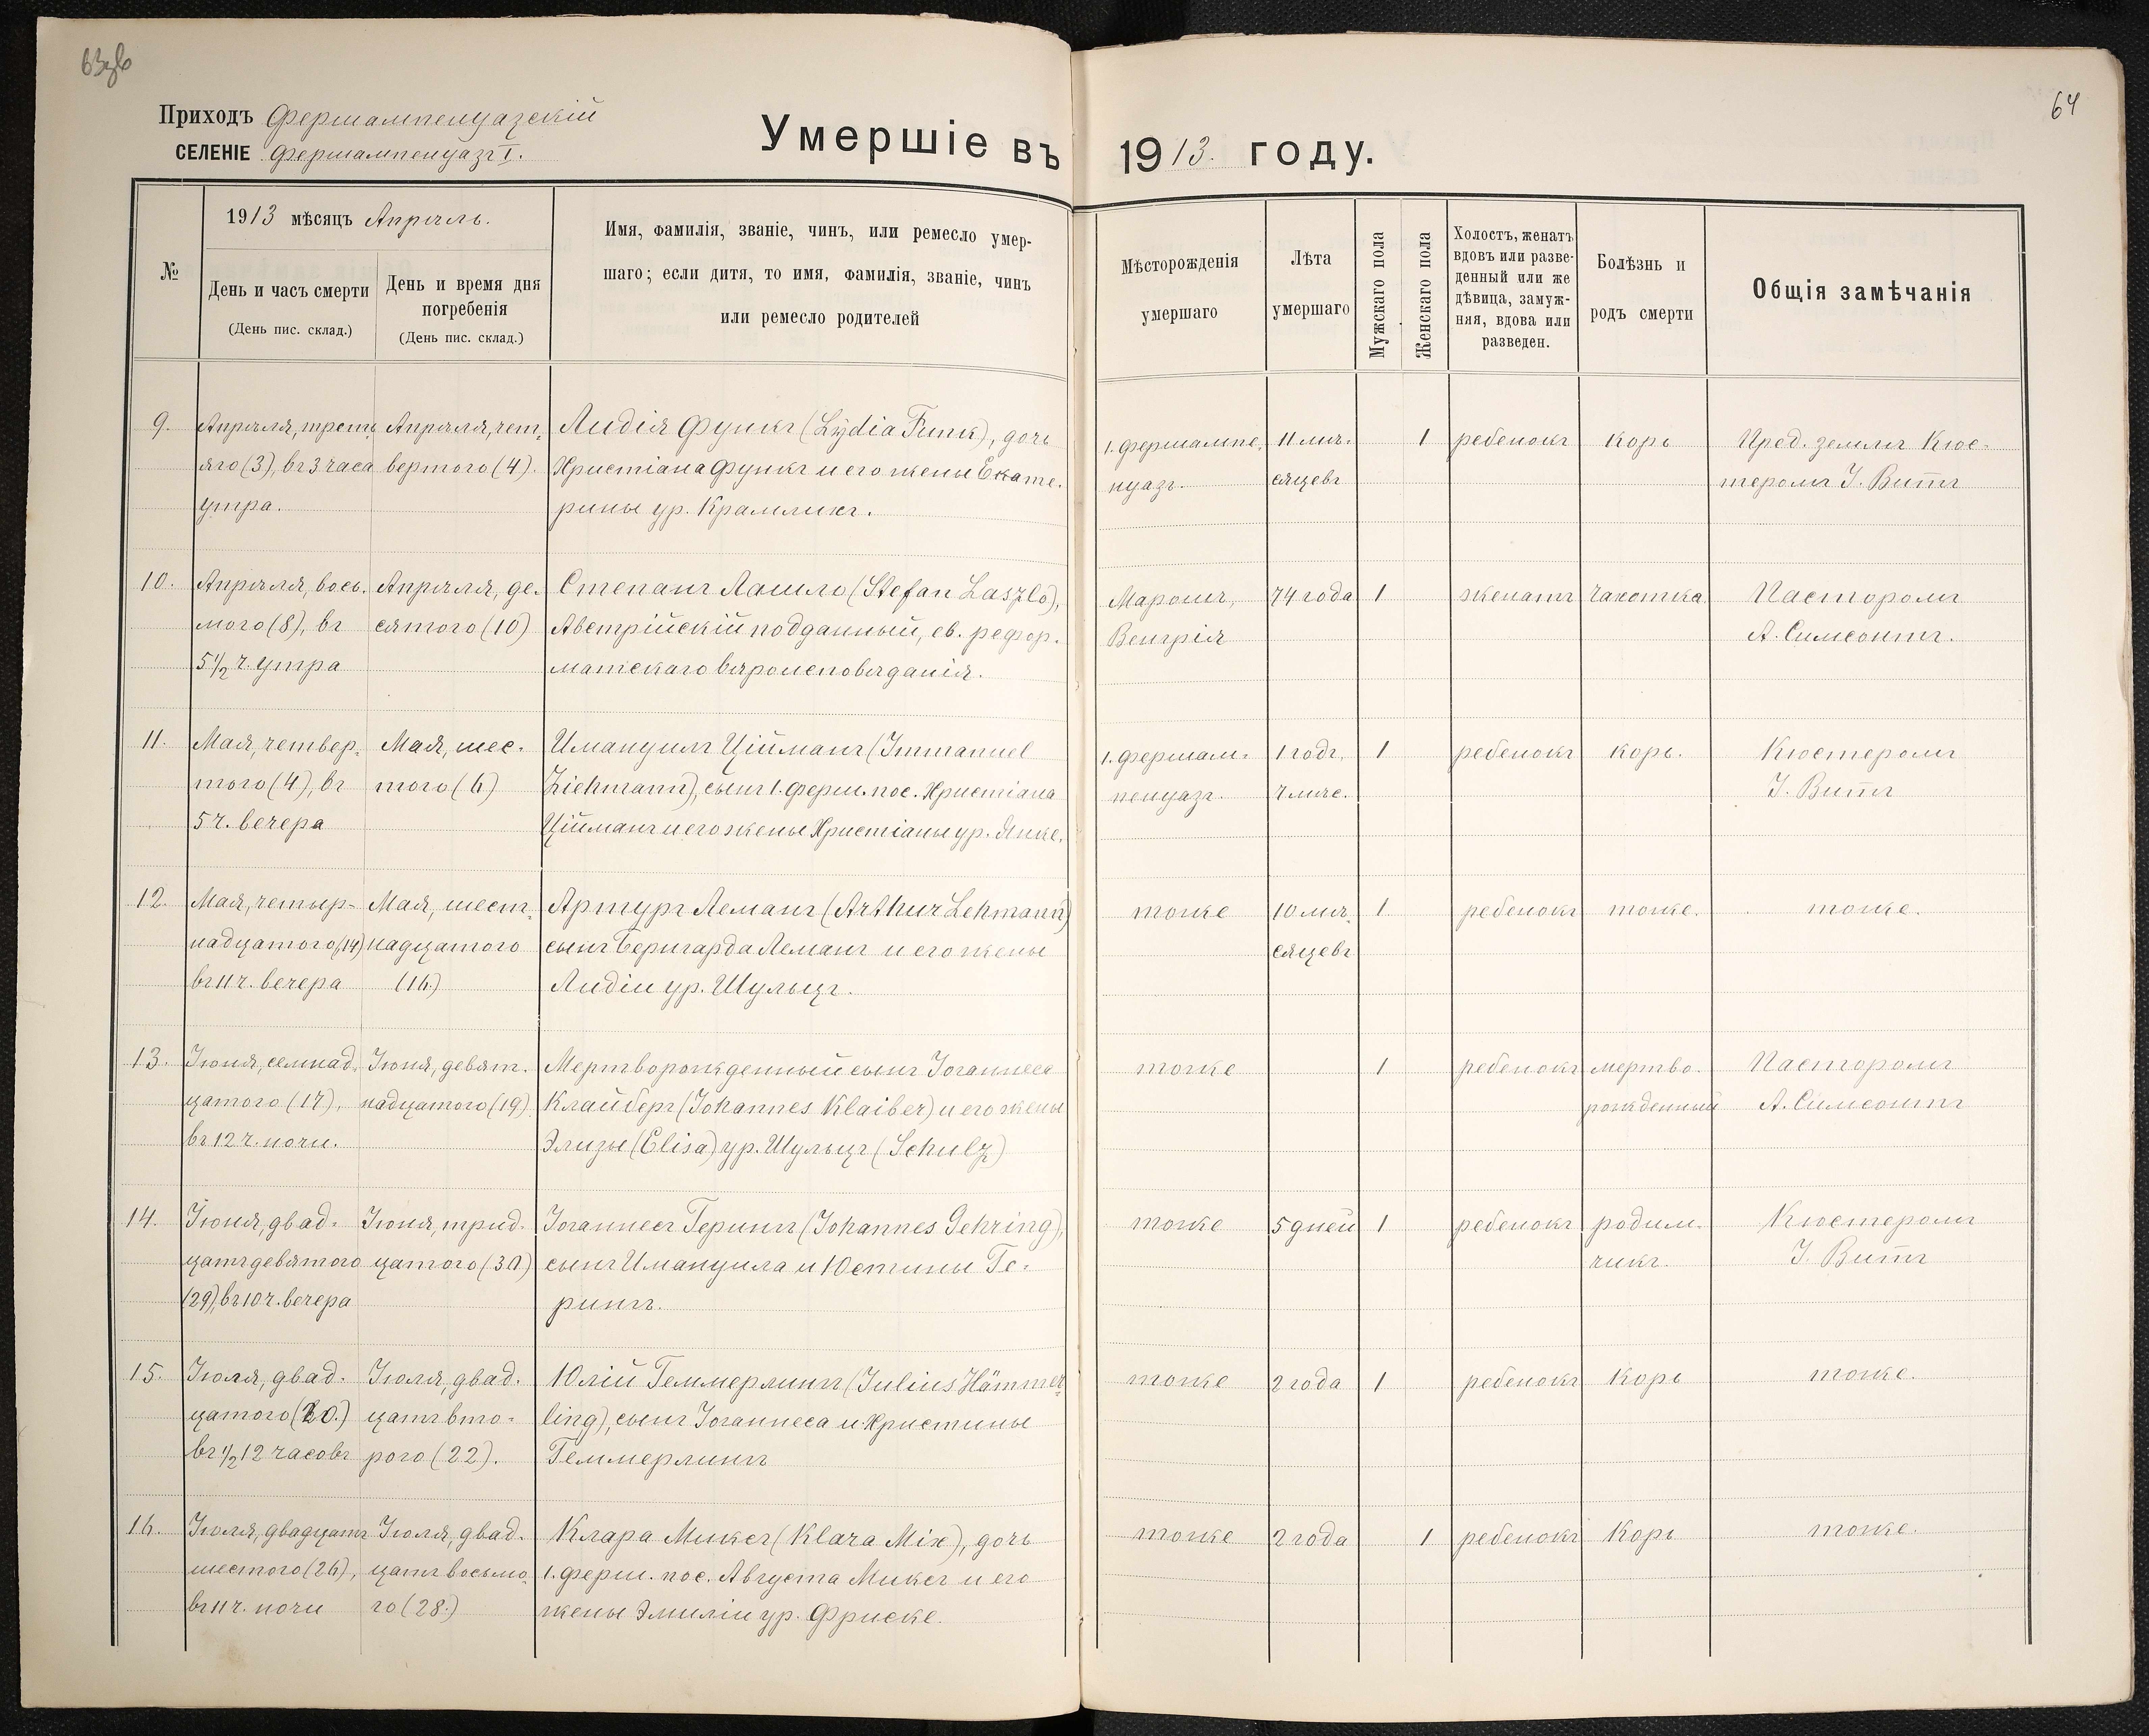 63 об
64
Приходъ Фершампенуазскій
СЕЛЕНІЕ Фершампенуазъ I.
Умершіе въ 1913. году.
№
1913 мѣсяцъ Апрѣль.
День и часъ смерти
(День пис. склад.)
День и время дня
погребенія
(День пис. склад.)
Имя, фамилія, званіе, чинъ, или ремесло умер-
шаго; если дитя, то имя, фамилія, званіе, чинъ
или ремесло родителей
Мѣсторожденія
умершаго
Лѣта
умершаго
Мужскаго пола
Женскаго пола
Холостъ, женатъ
вдовъ или разве-
денный или же
дѣвица, замуж-
няя, вдова или
разведен.
Болѣзнь и
родъ смерти
Общія замѣчанія
9.
Апрѣля, треть
яго (3), въ 3 часа
утра.
Апрѣля, чет-
вертого (4).
Лидія Функъ (Lydia Funk), дочь
Христіана Функъ и его жены Екате-
рины ур. Крамликъ.
1. Фершампе-
нуазъ.
11 мѣ-
сяцевъ
1
ребенокъ
корь
Пред. землѣ Кюс-
теромъ І. Виттъ
10.
Апрѣля, вось-
мого (8), въ
5 1/2 ч. утра
Апрѣля, де-
сятого (10)
Степанъ Лашло (Stefan Laszlo),
Австрійскій подданный, ев. рефор-
матскаго вѣроисповѣданія.
Марошъ,
Венгрія
74 года
1
женатъ
чахотка.
Пасторомъ
А. Симсонтъ.
11.
Мая, четвер-
того (4), въ
5 ч. вечера
Мая, шес-
того (6)
Имануилъ Ційманъ (Immanuel
Ziehmann), сынъ 1. ферш. пос. Христіана
Ційманъ и его жены Христіаны ур. Янке.
1. Фершам-
пенуазъ.
1 годъ,
7 мѣс.
1
ребенокъ
корь.
Кюстеромъ
І. Виттъ
12.
Мая, четыр-
надцатого (14)
въ 11 ч. вечера
Мая, шест-
надцатого
(16)
Артуръ Леманъ (Arthur Lehmann)
сынъ Бернгарда Леманъ и его жены
Лидіи ур. Шульцъ.
тоже
10 мѣ-
сяцевъ
1
ребенокъ
тоже.
тоже.
13.
Іюня, семнад-
цатого (17),
въ 12 ч. ночи.
Іюня, девят-
надцатого (19)
Мертворожденный сынъ Іоганнеса
Клайберъ (Johannes Klaiber) и его жены
Элизы (Elisa) ур. Шульцъ (Schulz)
тоже
1
ребенокъ
мертво-
рожденный
Пасторомъ
А. Симсонтъ
14.
Іюня, двад-
цать девятого
(29), въ 10 ч. вечера
Іюня, трид-
цатого (30)
Іоганнесъ Герингъ (Johannes Gehring),
сынъ Имануила и Юстины Ге-
рингъ.
тоже
5 дней
1
ребенокъ
родим-
чикъ.
Кюстеромъ
І. Виттъ
15.
Іюля, двад-
цатого (20.)
въ 1/2 12 часовъ
Іюля, двад-
цать вто-
рого (22).
Юлій Геммерлингъ (Julius Hämmer-
ling), сынъ Іоганнеса и Христины
Геммерлингъ
тоже
2 года
1
ребенокъ
Корь
тоже.
16.
Іюля, двадцать
шестого (26),
въ 11 ч. ночи
Іюля, двад-
цать восьмо-
го (28.)
Клара Миксъ (Klara Mix), дочь
1. ферш. пос. Августа Миксъ и его
жены Эмиліи ур. Фриске.
тоже
2 года
1
ребенокъ
Корь
тоже.